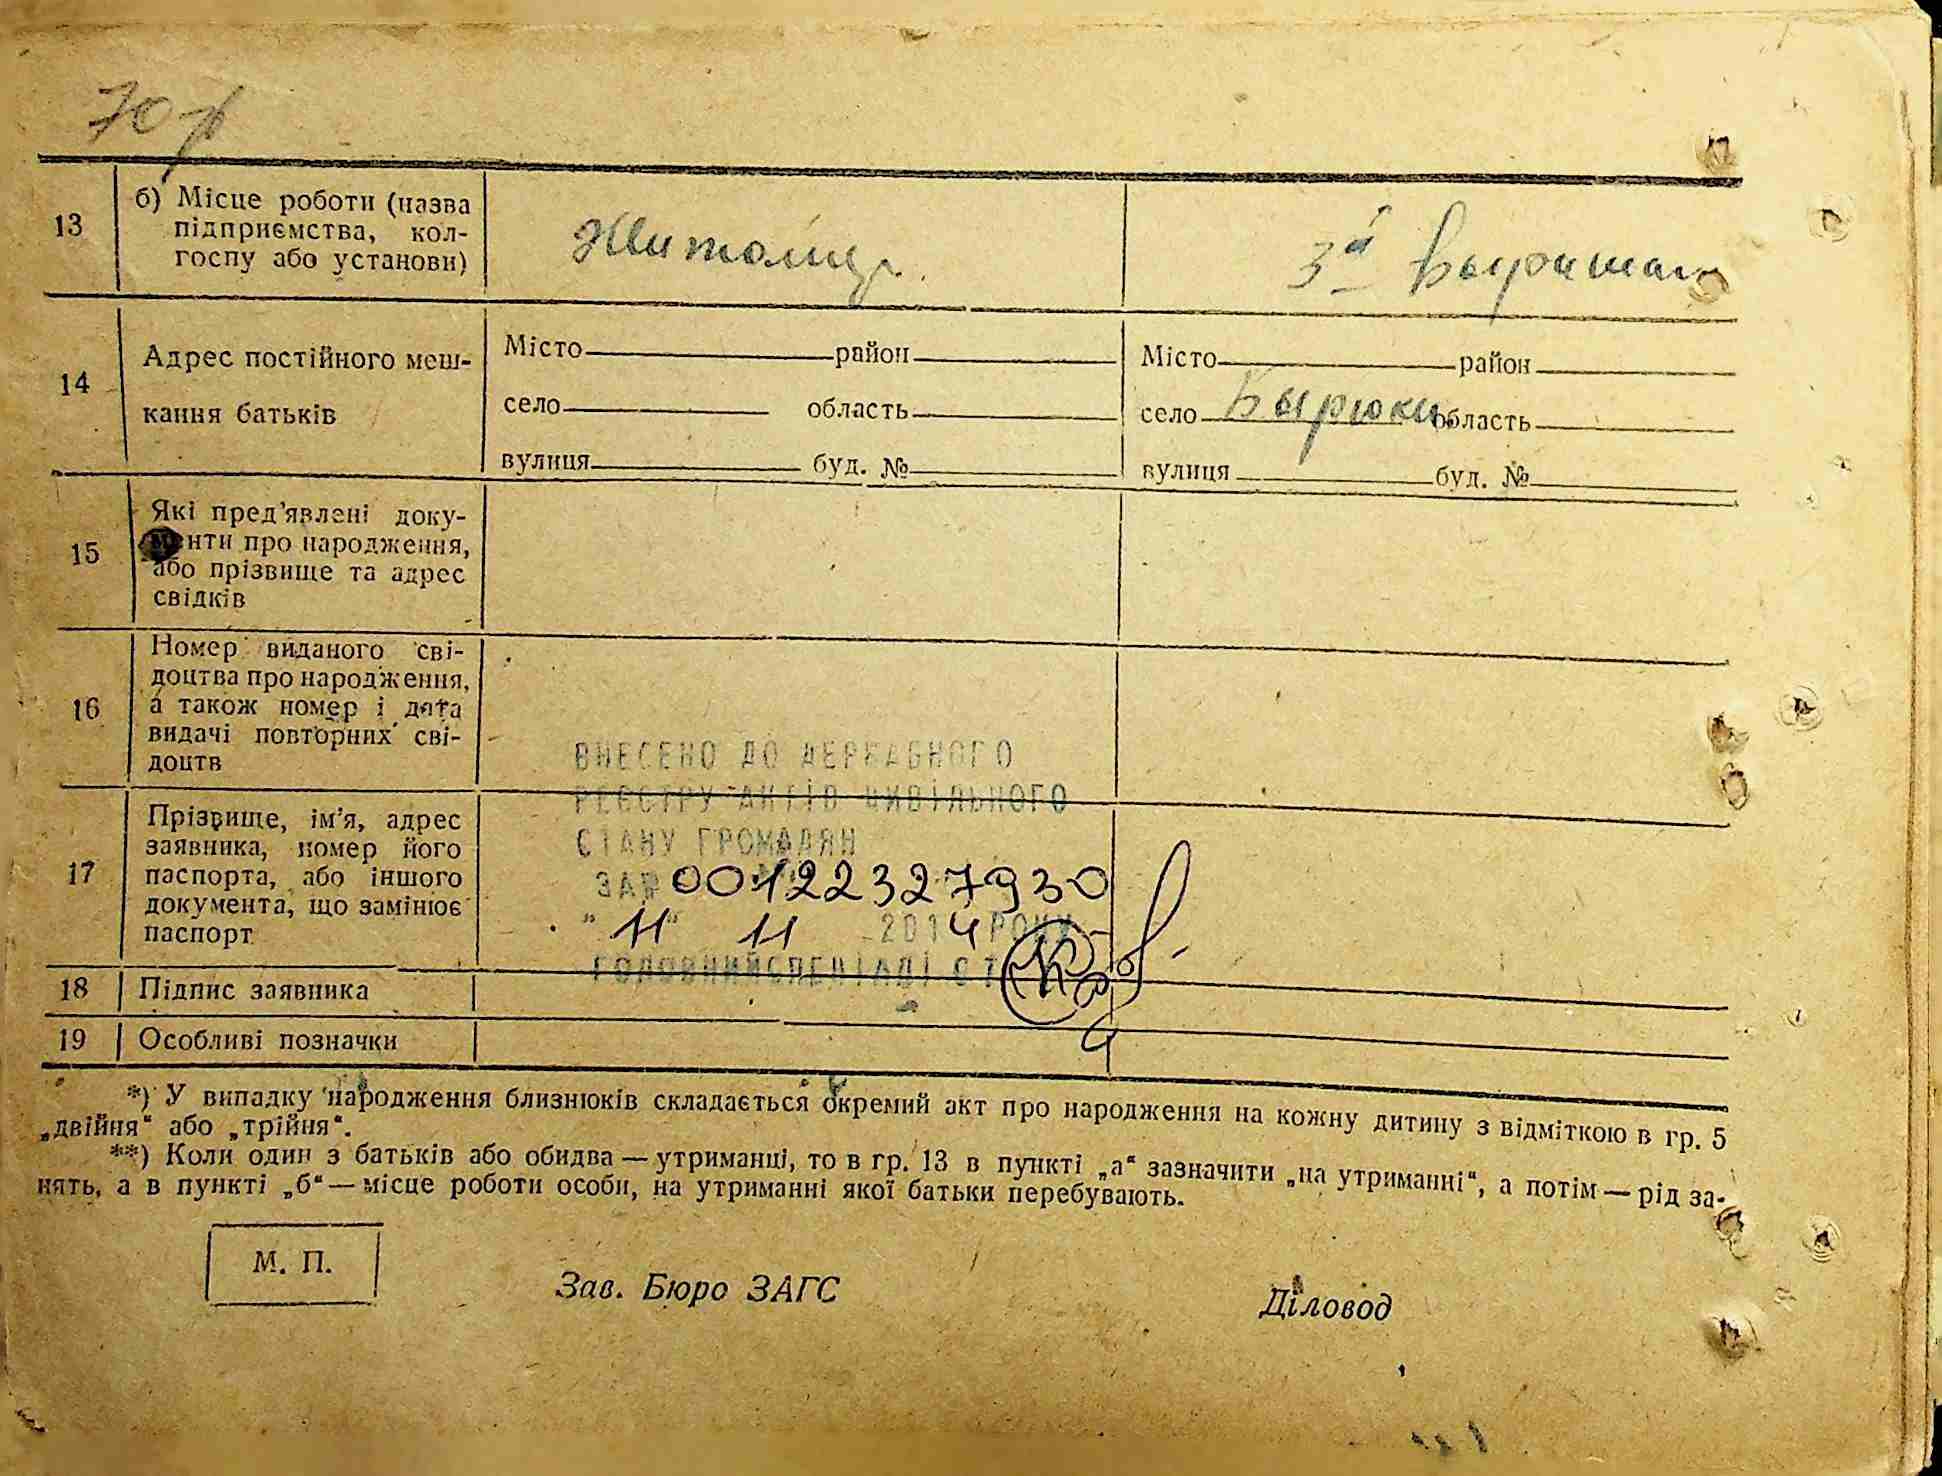 70 р
13
б) Місце роботи (назва
підприємства, кол-
госпу або установи)
Житомир.
3й
14
Адрес постійного меш-
кання батьків
Місто район
село область
вулиця буд. №
Місто район
село Бирюки область
вулиця буд. №
15
Які пред'явлені доку-
менти про народження,
або прізвище та адрес
свідків
16
Номер виданого сві-
доцтва про народження,
а також номер і дата
видачі повторних сві-
доцтв
ВНЕСЕНО ДО ДЕРЖАВНОГО
РЕЄСТРУ АКТІВ ЦИВІЛЬНОГО
СТАНУ ГРОМАДЯН
17
Прізвище, ім'я, адрес
заявника, номер його
паспорта, або іншого
документа, що замінює
паспорт
ЗА № 00122327930
"11" 11 2014 РОКУ
ГОЛОВНИЙ СПЕЦІАЛІСТ
18 Підпис заявника
19 Особливі позначки
*) У випадку народження близнюків складається окремий акт про народження на кожну дитину з відміткою в гр. 5
„двійня“ або „трійня“.
**) Коли один з батьків або обидва — утриманці, то в гр. 13 в пункті „а“ зазначити „на утриманні“, а потім — рід за-
нять, а в пункті „б“ — місце роботи особи, на утриманні якої батьки перебувають.
М. П.
Зав. Бюро ЗАГС
Діловод